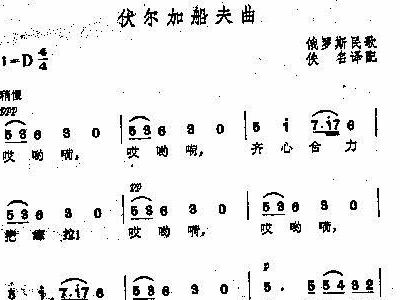 伏尔加船夫曲
俄罗斯民歌
1=D 4/4
佚名译配
稍慢
ppp
5 3 6 3 0 | 5 3 6 3 0 | 5 i 7·i7 6
哎哟嗬, 哎哟嗬, 齐心合力
pp
5 3 6 3 0 | 5 3 6 3 0 | 5 3 6 3 0
把纤拉! 哎哟嗬, 哎哟嗬,
p
5 5 4 3 2